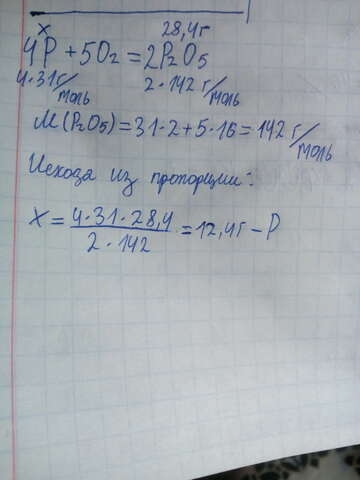 x 28,4г
4P + 5O₂ = 2P₂O₅
4·31г/моль 2·142 г/моль
M(P₂O₅) = 31·2 + 5·16 = 142 г/моль
Исходя из пропорции:
X = 4·31·28,4 / 2·142 = 12,4г - P